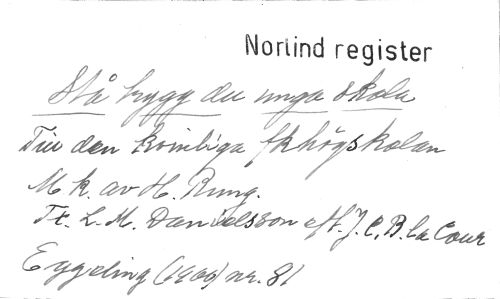 Norlind register
Stå trygg du unga skola
Till den kvinliga fkhögskolan
M k. av H. Rung.
Tx. L. M. Danielsson eft. J. C. B. la Cour
Eggeling (1900) nr. 81